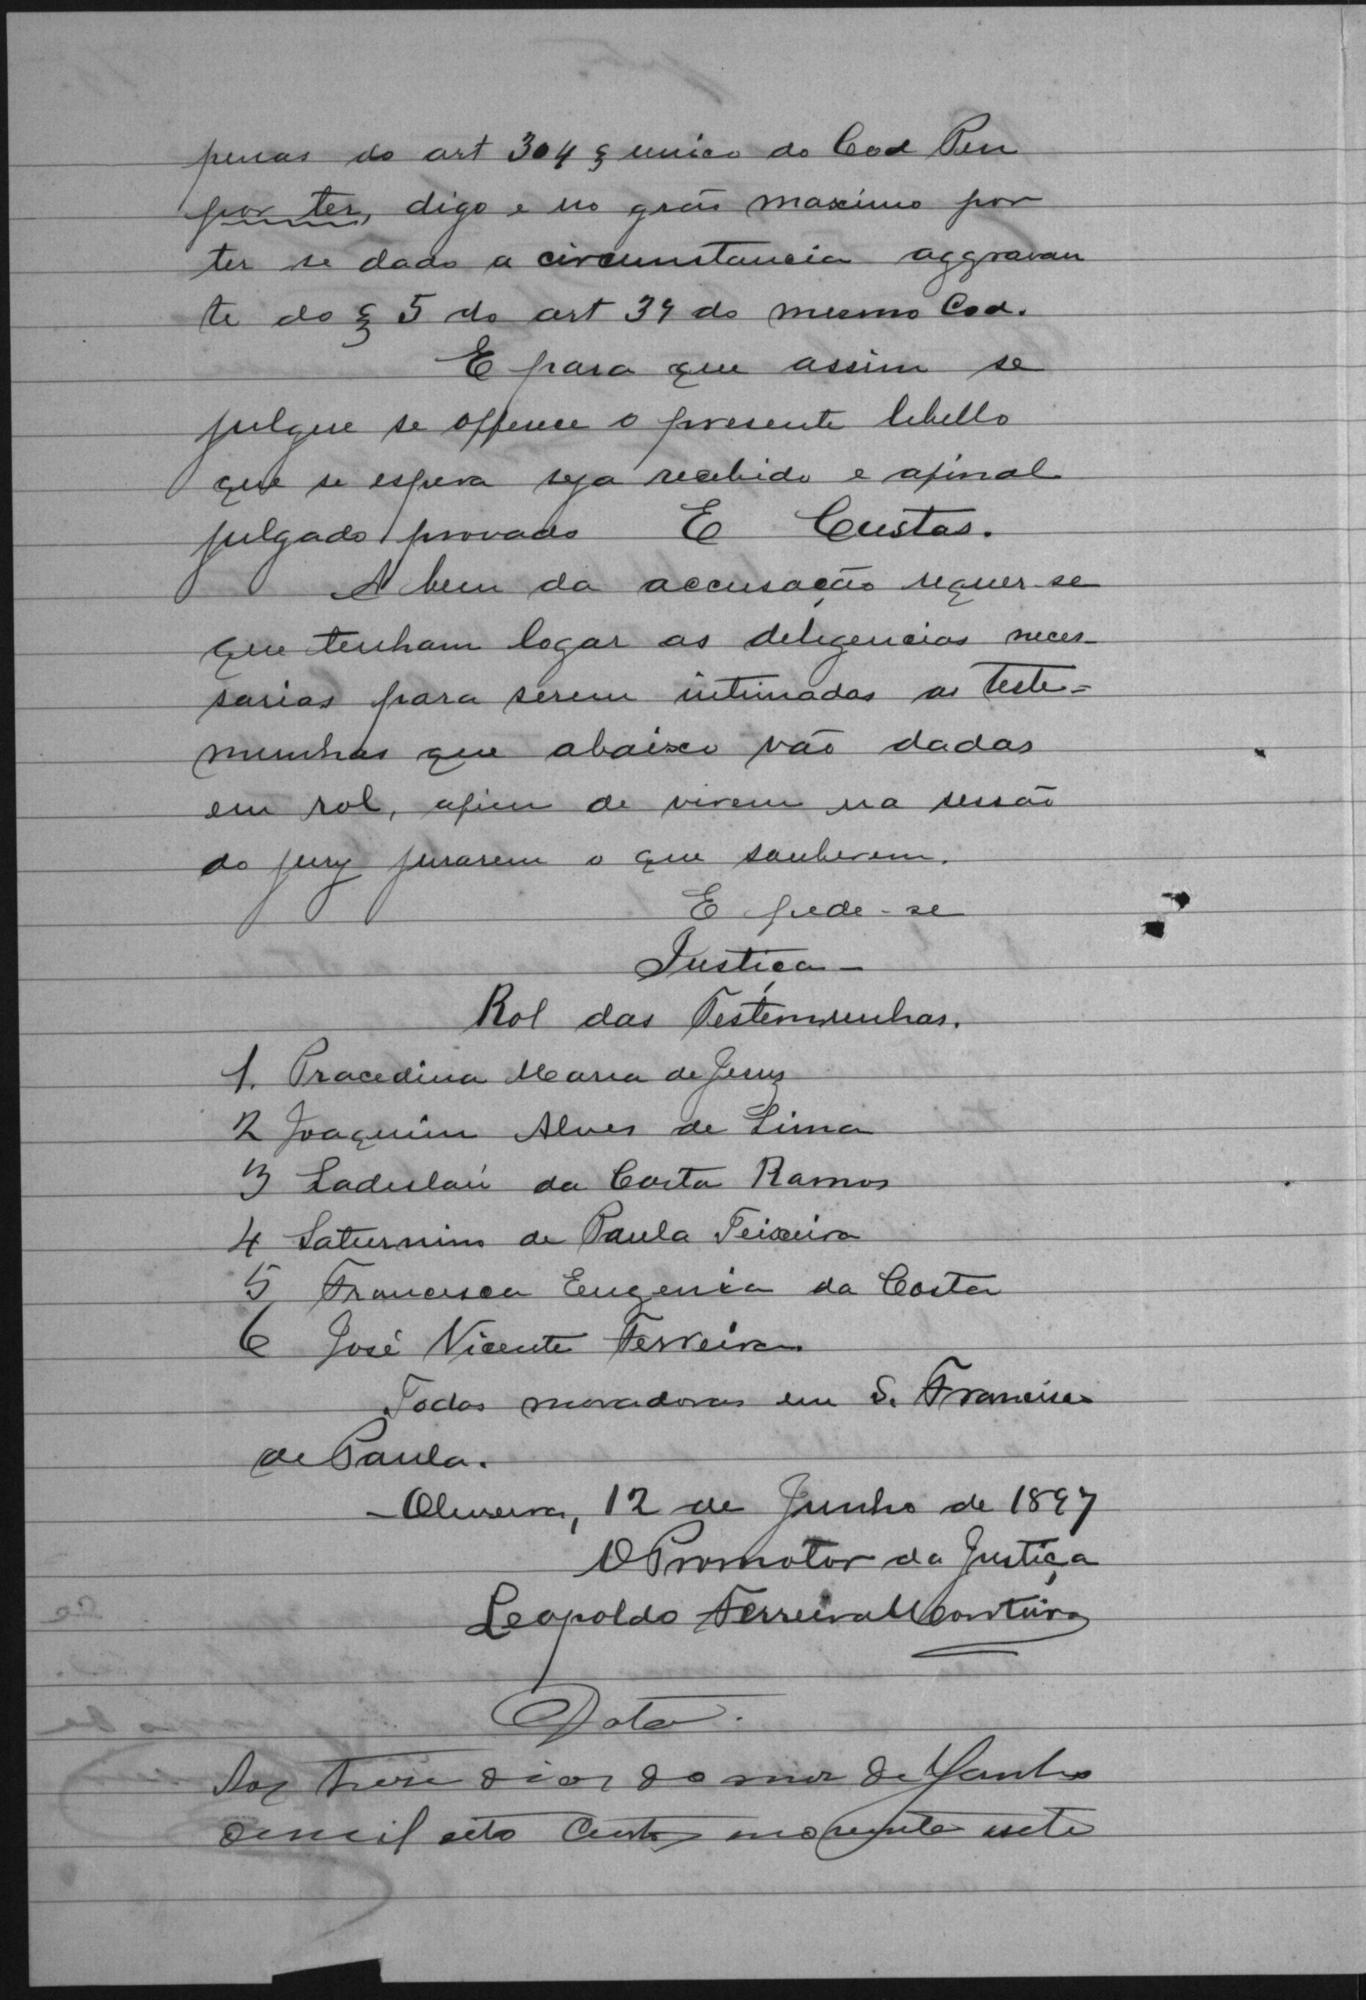 penas do art 304 § unico do Cod Pen
por ter, digo e no gráo maximo por
ter se dado a circumstancia aggravan
te do § 5 do art 39 do mesmo Cod.
E para que assim se
julgue se offerece o presente libello
que se espera seja recebido e afinal
julgado provado E Custas.
A bem da accusação requer-se
que tenham logar as deligencias neces-
sarias para serem intimadas as teste=
munhas que abaixo vão dadas
em rol, afim de virem na sessão
do jury jurarem o que souberem.
E pede-se
Justiça -
Rol das Testemunhas.
1. Pracedina Maria de Jesus
2 Joaquim Alves de Lima
3 Ladislau da Costa Ramos
4 Saturnino de Paula Teixeira
5 Francisca Eugenia da Costa
6 José Vicente Ferreira
Todos moradores em S. Francisco
de Paula.
- Oliveira, 12 de Junho de 1897
O Promotor da Justiça
Leopoldo Ferreira Monteiro
Data.
Aos treze dias do mez de Junho
de mil oito centos noventa e sete